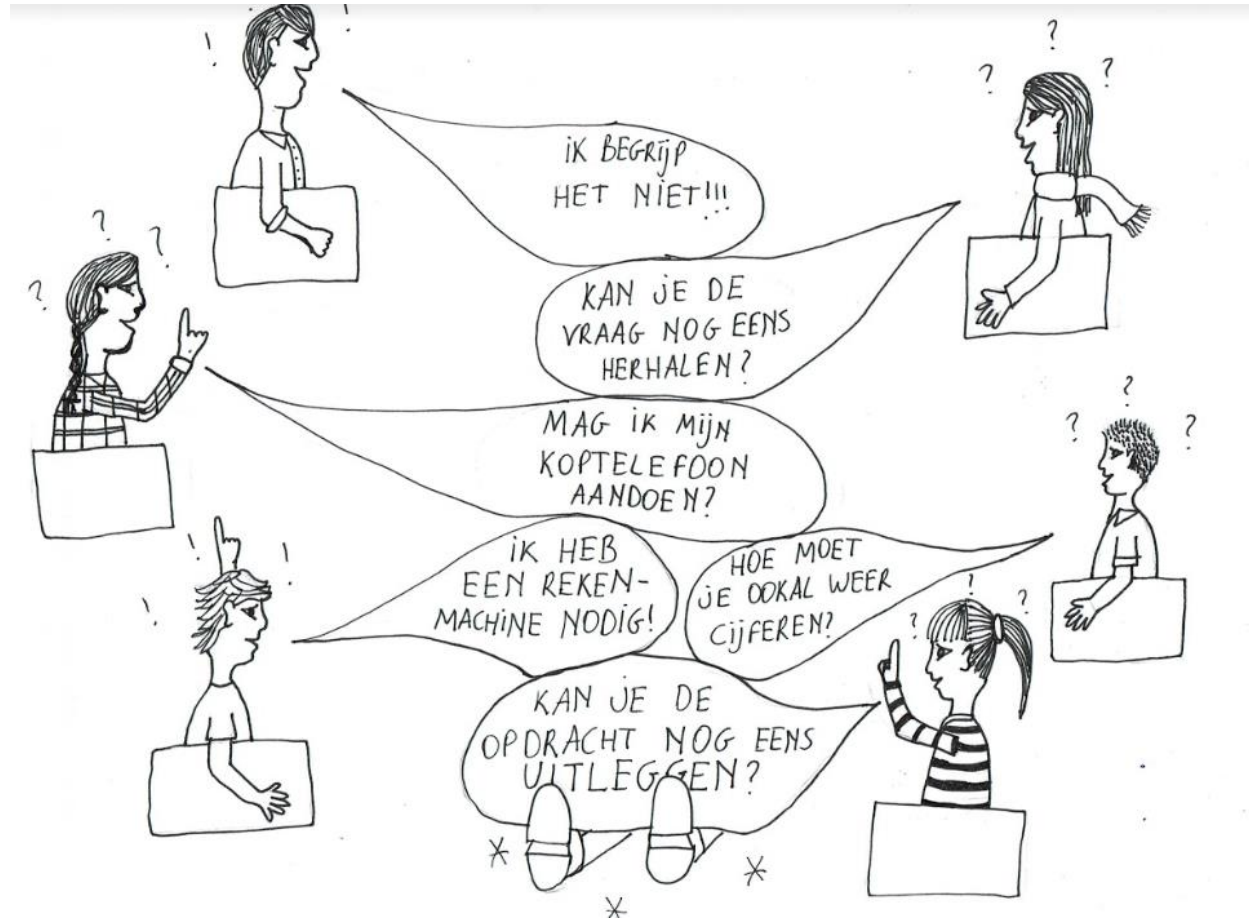 IK BEGRIJP
HET NIET!!!
KAN JE DE
VRAAG NOG EENS
HERHALEN?
MAG IK MIJN
KOPTELEFOON
AANDOEN?
IK HEB
EEN REKEN-
MACHINE NODIG!
HOE MOET
JE OOKAL WEER
CIJFEREN?
KAN JE DE
OPDRACHT NOG EENS
UITLEGGEN?